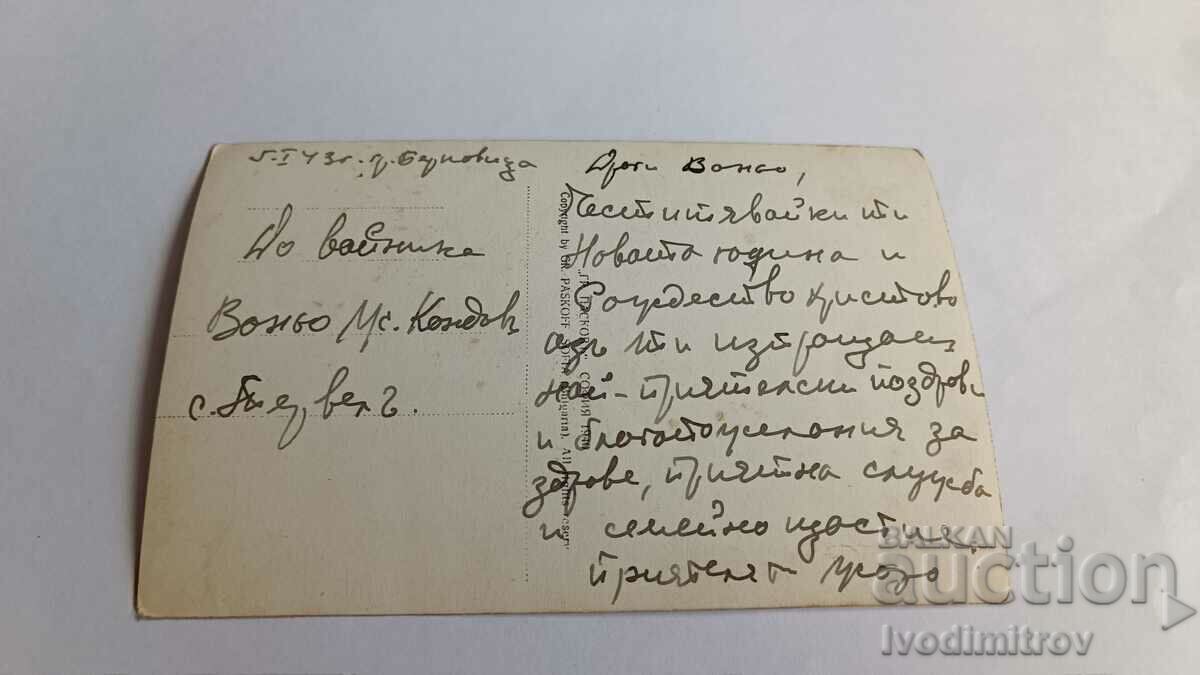 5.I 43г. гр. Берковица
До войника
Воньо Кондовъ
с.
Драги Воньо,
Честитявайки ти
Новата година и
Рождество Христово
азъ ти изпращам
най-приятелски поздрови
и благопожелания за
здраве, приятна служба
и семейно щастие.
Приятелят
"ГР. ПАСКОВЪ" СОФИЯ
Copyright by GR. PASKOFF SOFIA (Bulgaria). All rights reserv
BALKAN
auction
Ivodimitrov